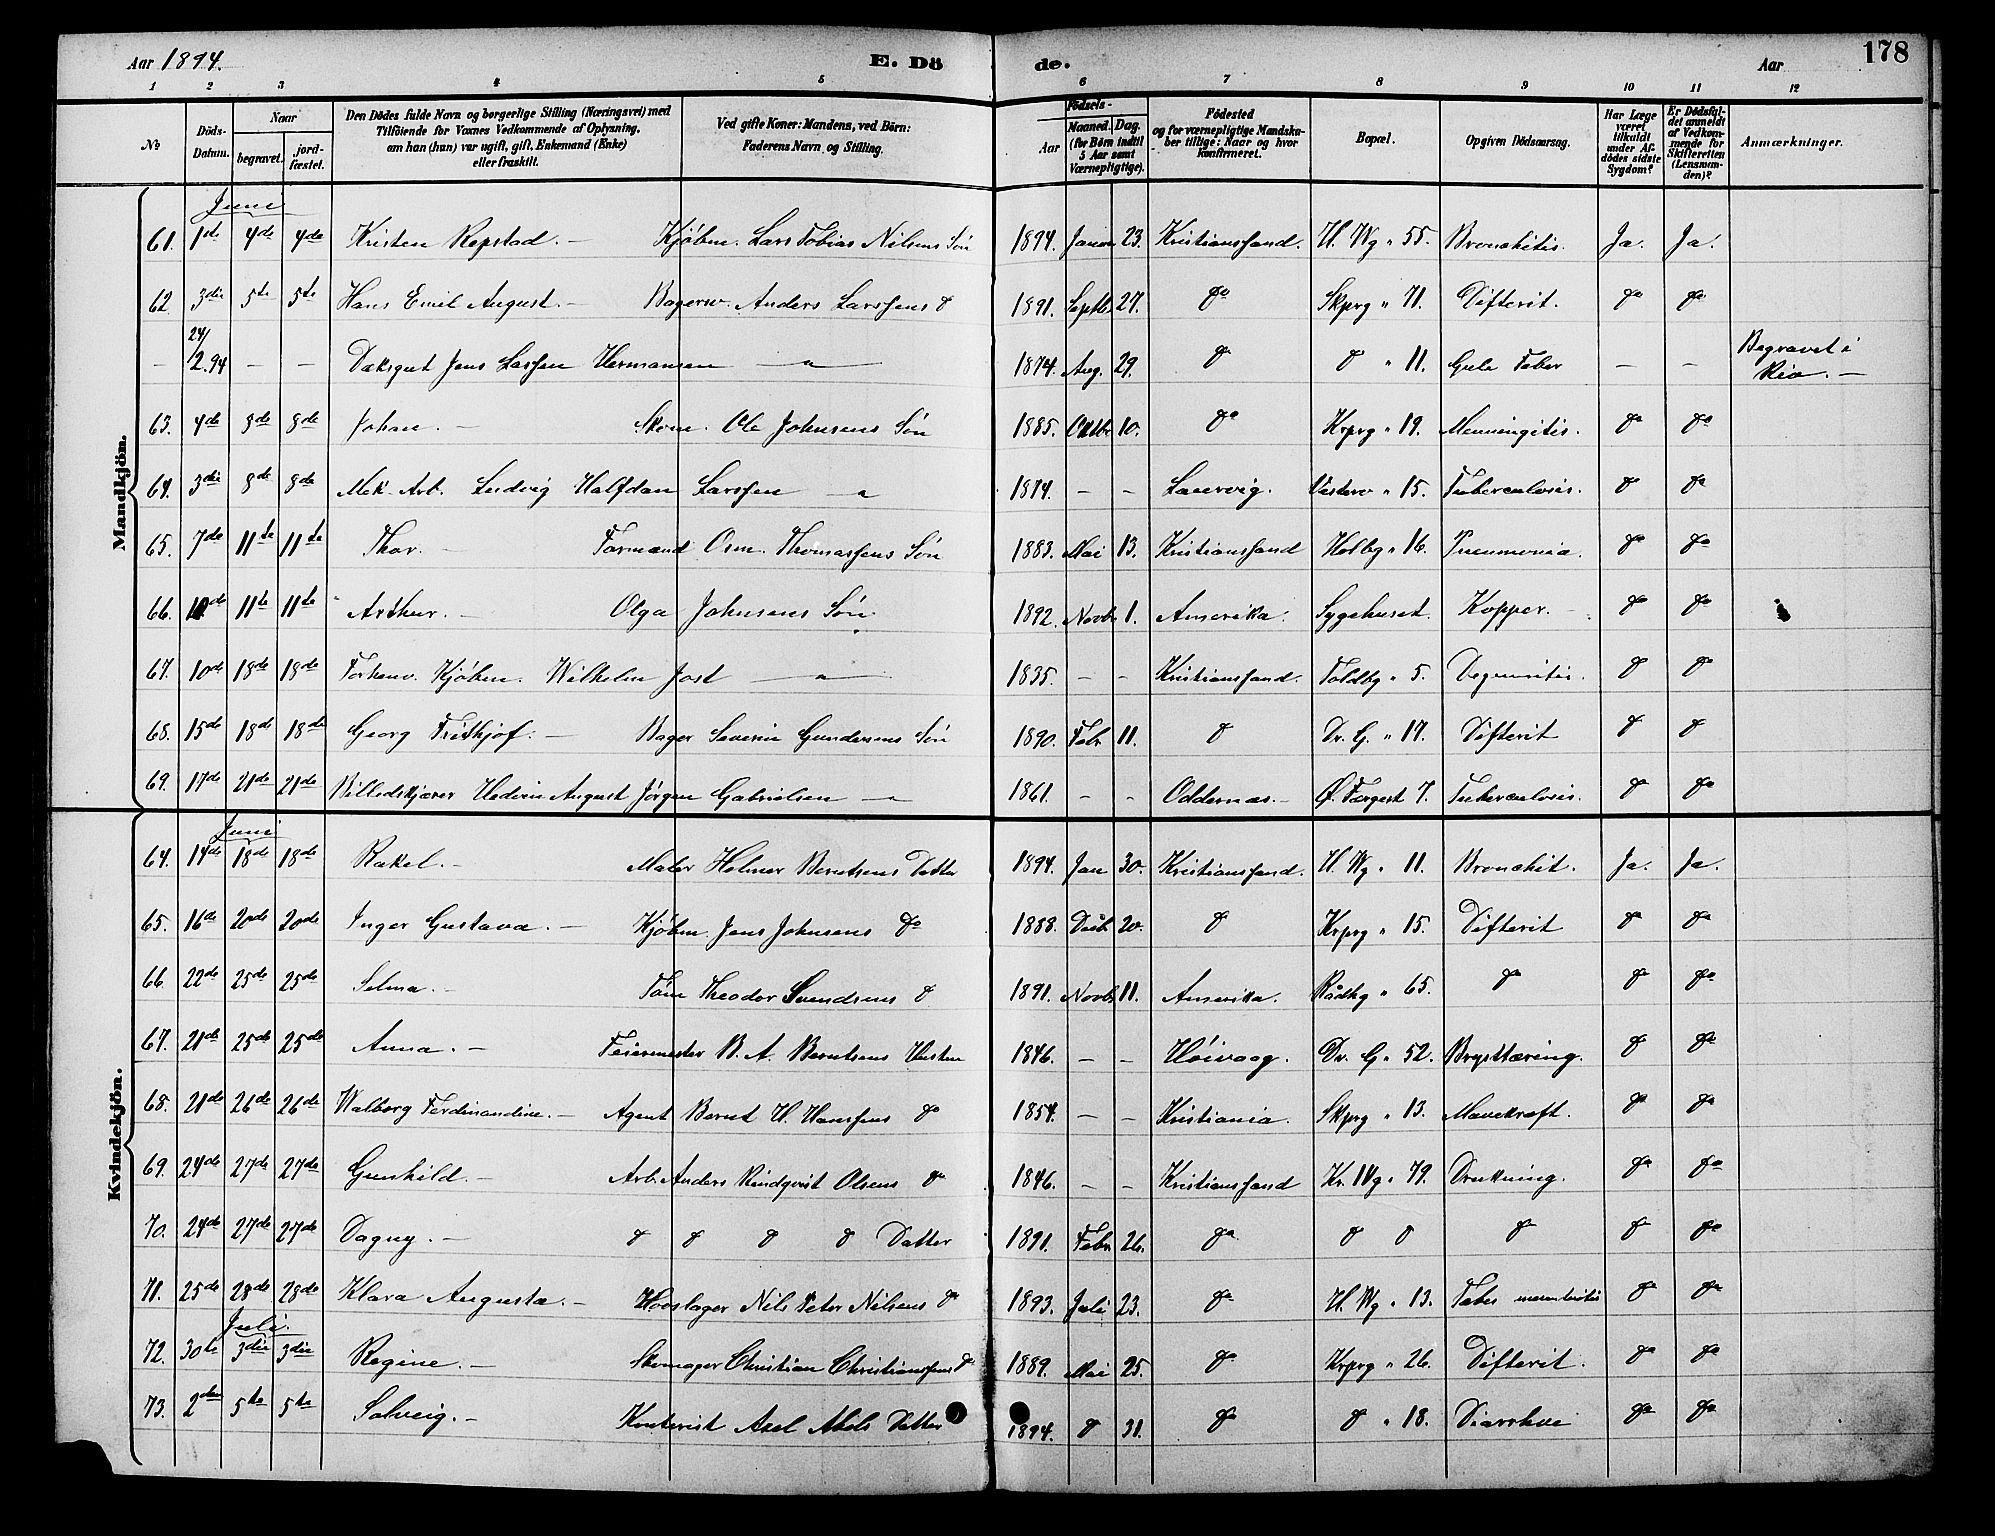 Aar 1894. E. Dö de. Aar 178
1 2 3 4 5 6 7 8 9 10 11 12
№ Döds-Datum. Naar begravet. jord-fæstet. Den Dödes fulde Navn og borgerlige Stilling (Næringsvei) med Tilföiende for Voxnes Vedkommende af Oplysning, om han (hun) var ugift, gift, Enkemand (Enke) eller fraskilt. Ved gifte Koner: Mandens, ved Börn: Faderens Navn og Stilling. Födsels- Aar Maaned. Dag. (for Börn indtil 5 Aar samt Værnepligtige). Födested og for værnepligtige Mandskaber tillige: Naar og hvor konfirmeret. Bopæl. Opgiven Dödsaarsag. Har Læge været tilkaldt under Afdödes sidste Sygdom? Er Dödsfaldet anmeldt af Vedkommende for Skifteretten (Lensmanden)? Anmærkninger.
Mandkjön.
Juni
61. 1ste 4de 4de Kristen Repstad. — Kjöbm. Lars Tobias Nilsens Sön 1894. Januar 23. Kristianssand. H. Wg " 55. Bronchitis. Ja. Ja.
62 3die 5te 5te Hans Emil August. — Bagersv. Anders Larssens do 1891. Septb. 27. do Skprg " 71. Difterit. do do
— 24/2.94 — — Dæksgut Jens Lassen Hermansen — " — 1874. Aug. 29. do do " 11. Gule Feber — — Begravet i Rio. —
63. 4de 8de 8de Johan. — Skom. Ole Johnsens Sön 1885. Oktbr 10. do Krprg " 19. Menningitis. do do
64. 3die 8de 8de Mek. Arb. Ludvig Halfdan Larssen — " 1874. — — Laurvig. Vesterv " 15. Tuberculosis. do do
65. 7de 11te 11te Thor. — Formand Osm. Thomassens Sön 1883. Mai 13. Kristianssand Holbg " 16. Pneumonia. do do
66. 10de 11te 11te Arthur. — Olga Johnsens Sön. 1892. Novbr 1. Amerika. Sygehuset. Kopper. — do do
67. 10de 18de 18de Forhenv. Kjöbm. Wilhelm Jost — " — 1835. — — Kristianssand. Toldbg " 5. do do
68. 15de 18de 18de Georg Fritkjof. — Bager Severin Gundersens Sön 1890. Febr 11. do Dr. G. " 17. Difterit do do
69. 17de 21de 21de Billedskjærer Hedvin August Jörgen Gabrielsen — " 1861. — — Oddernæs. — Ø. Færgest 7. Tuberculosis. do do
Kvindekjön.
Juni
64. 14de 18de 18de Rakel. — Maler Helmer Berntsens Datter 1894. Jan 30. Kristianssand. H. Wg " 11. Bronchit. Ja. Ja.
65. 16de 20de 20de Inger Gustava. — Kjöbm. Jens Johnsens do 1888. Decb. 20. do Krprg " 15. Difterit do do
66. 22de 25de 25de Selma. — Töm Theodor Svendsens do 1891. Novbr 11. Amerika. Rådhg " 65. do do do
67. 21de 25de 25de Anna. — Feiermester B. A. Berntsens Hustru 1846. — — Höivaag. Dr. G " 52. Brysttæring. do do
68. 21de 26de 26de Walborg Ferdinandine. — Agent Bernt H. Hanssens do 1854. — — Kristiania. Skprg " 13. Mavekræft. do do
69. 24de 27de 27de Gunhild. — Arb. Anders Rindqvist Olsens do 1846. — — Kristianssand Kr. IVg " 79. Drukning. do do
70. 24de 27de 27de Dagny. — do do do do Datter 1891. Febr. 26. do do do do do do
71. 25de 28de 28de Klara Augusta. — Hovslager Nils Peter Nilsens do 1893. Juli 23. do H. Wg " 13. Tabes do do
Juli.
72. 30te 3die 3die Regine. — Skomager Christian Christianssens do 1889. Mai 25. do Krprg " 26. Difterit. do do
73. 2den 5te 5te Solveig. — Kontorist Axel Abels Datter 1894. do 31. do do " 18. Diarrhoe do do